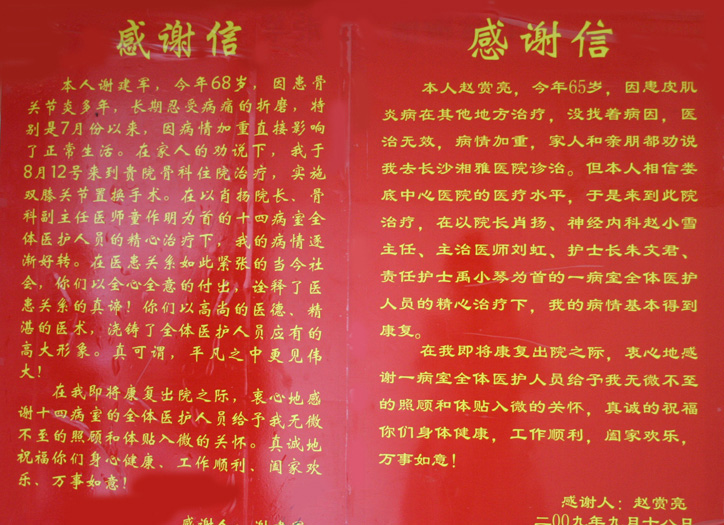 感谢信
本人谢建军，今年68岁，因患骨
关节炎多年，长期忍受病痛的折磨，特
别是7月份以来，因病情加重直接影响
了正常生活。在家人的劝说下，我于
8月12号来到贵院骨科住院治疗，实施
双膝关节置换手术。在以肖扬院长、骨
科副主任医师童作明为首的十四病室全
体医护人员的精心治疗下，我的病情逐
渐好转。在医患关系如此紧张的当今社
会，你们以全心全意的付出，诠释了医
患关系的真谛！你们以高尚的医德、精
湛的医术，浇铸了全体医护人员应有的
高大形象。真可谓，平凡之中更见伟
大！
在我即将康复出院之际，衷心地感
谢十四病室的全体医护人员给予我无微
不至的照顾和体贴入微的关怀。真诚地
祝福你们身心健康、工作顺利、阖家欢
乐、万事如意！
感谢人：谢建军
感谢信
本人赵赏亮，今年65岁，因患皮肌
炎病在其他地方治疗，没找着病因，医
治无效，病情加重，家人和亲朋都劝说
我去长沙湘雅医院诊治。但本人相信娄
底中心医院的医疗水平，于是来到此院
治疗，在以院长肖扬、神经内科赵小雪
主任、主治医师刘虹、护士长朱文君、
责任护士禹小琴为首的一病室全体医护
人员的精心治疗下，我的病情基本得到
康复。
在我即将康复出院之际，衷心地感
谢一病室全体医护人员给予我无微不至
的照顾和体贴入微的关怀，真诚的祝福
你们身体健康，工作顺利，阖家欢乐，
万事如意！
感谢人：赵赏亮
二00九年九月十八日